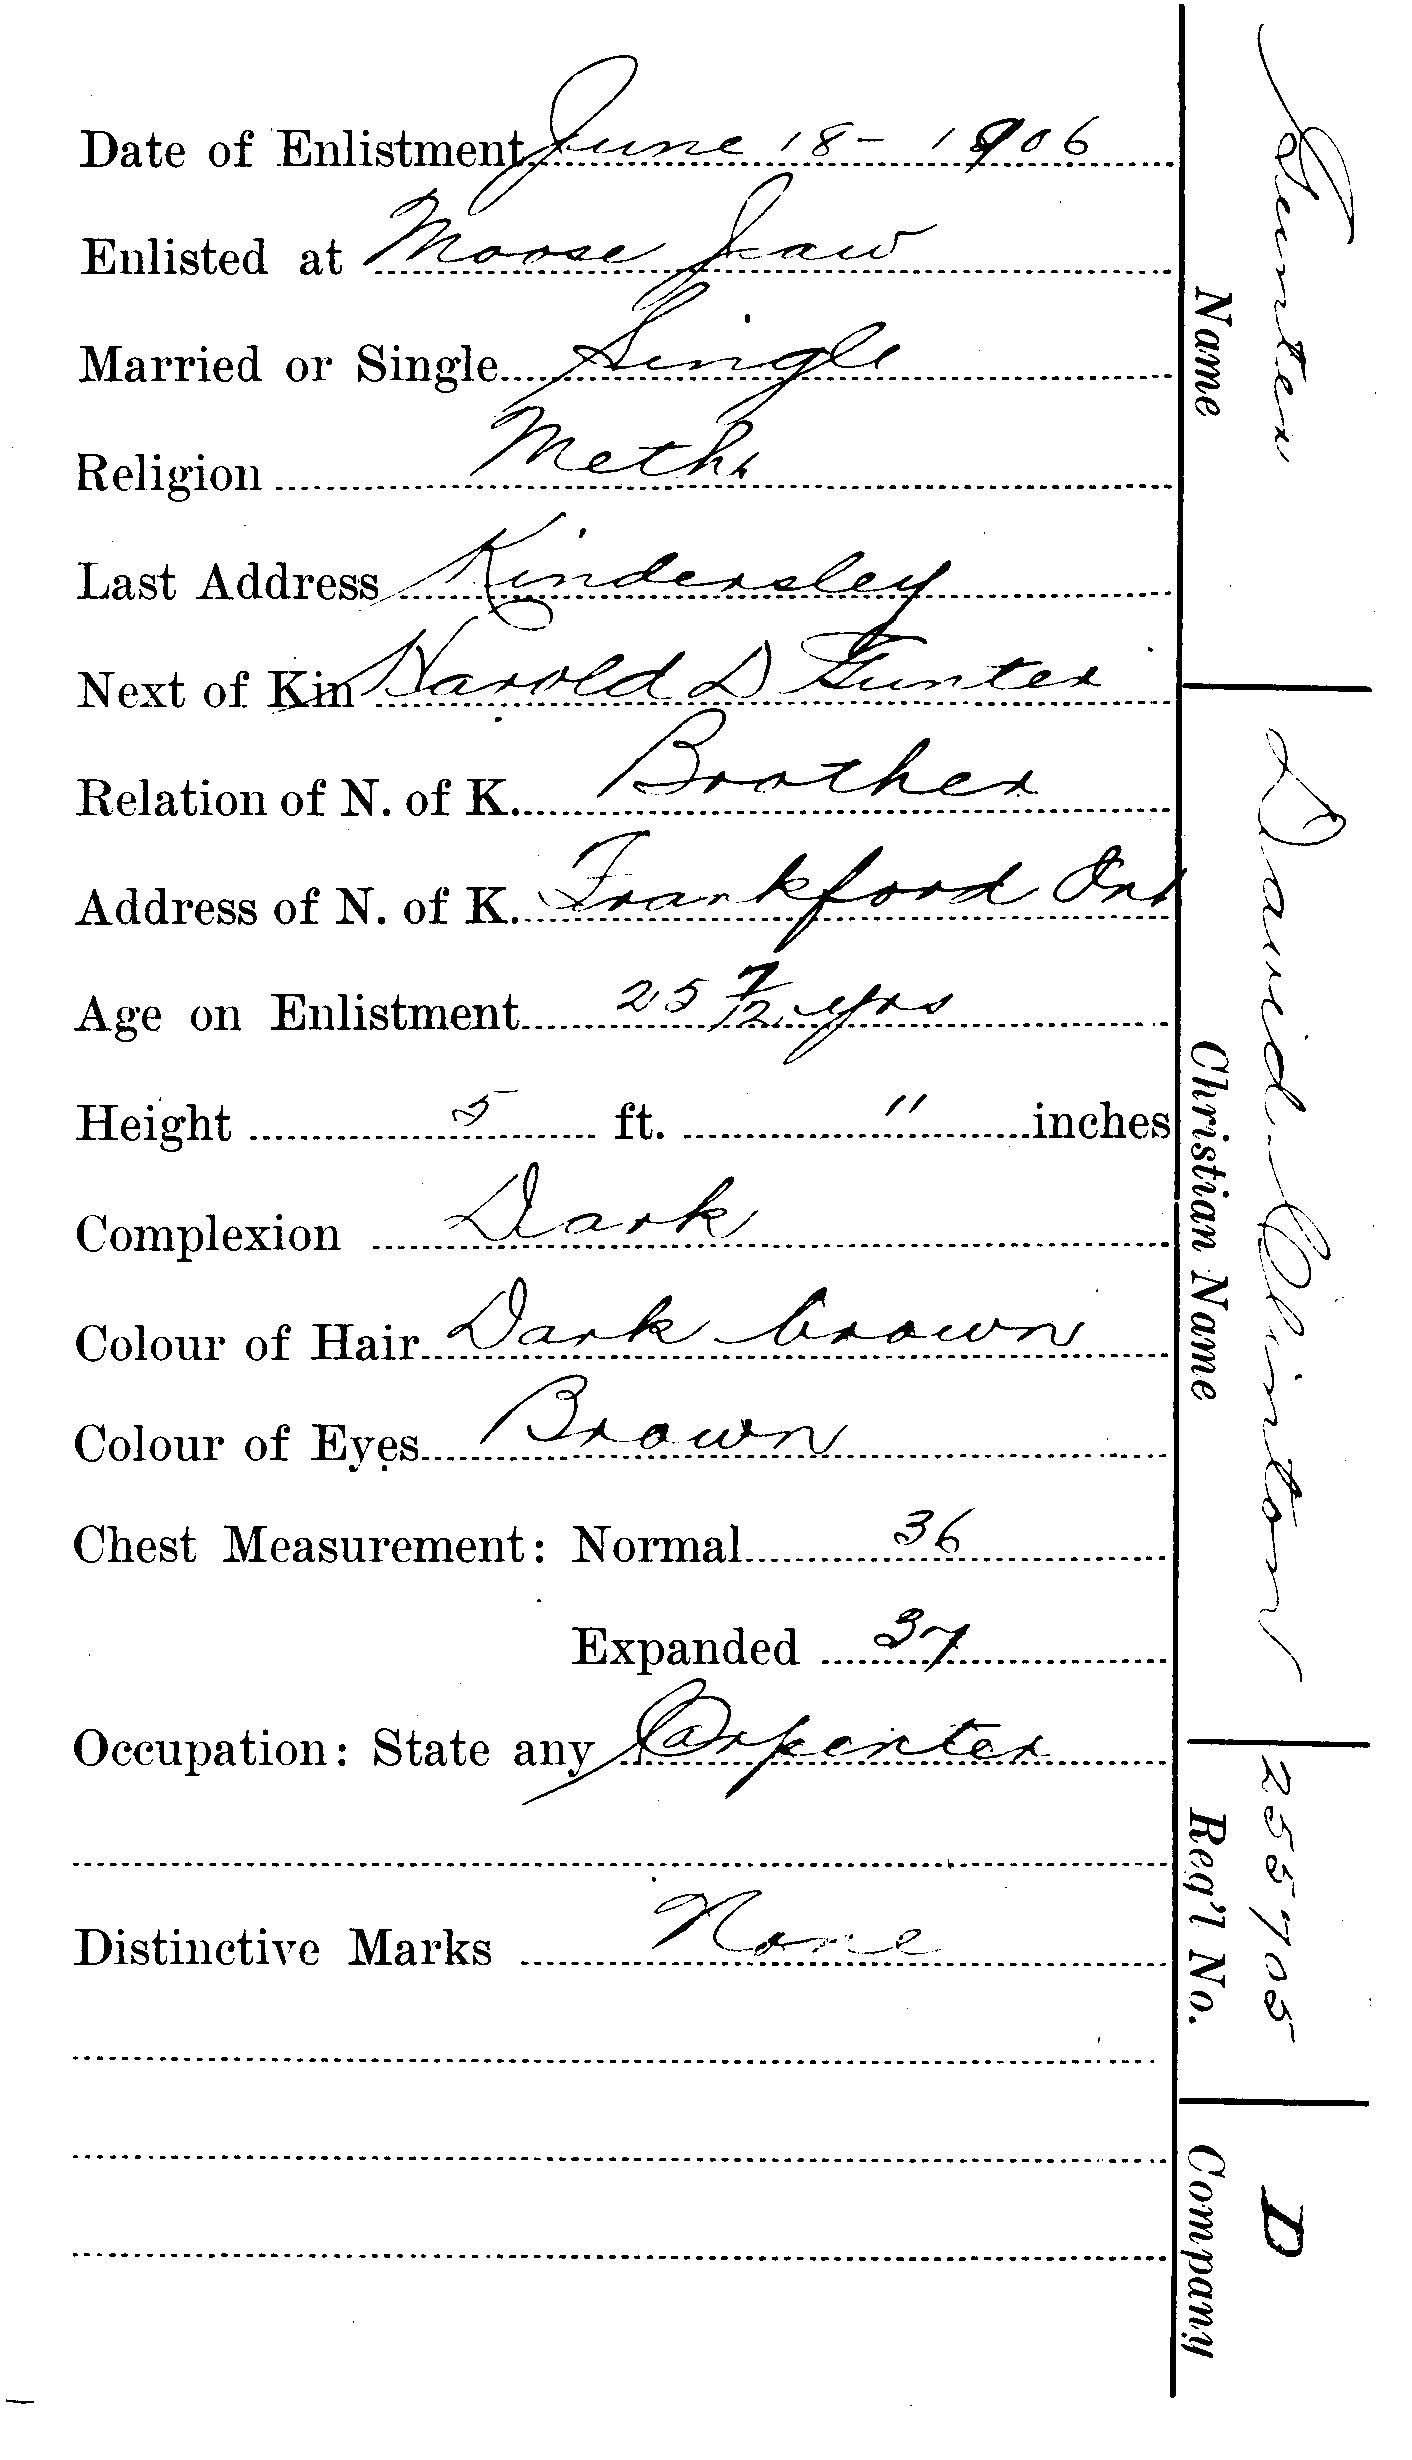 Date of Enlistment June 18 - 1906
Enlisted at Moose Jaw
Married or Single Single
Religion Meth.
Last Address Kindersley
Next of Kin Harold D Gunter
Relation of N. of K. Brother
Address of N. of K. Frankford Ont
Age on Enlistment 25 7/12 yrs
Height 5 ft. 11 inches
Complexion Dark
Colour of Hair Dark brown
Colour of Eyes Brown
Chest Measurement: Normal 36
Expanded 37
Occupation: State any Carpenter
Distinctive Marks None
Gunter
Name
David Clinton
Christian Name
255705
Reg'l No.
D
Company